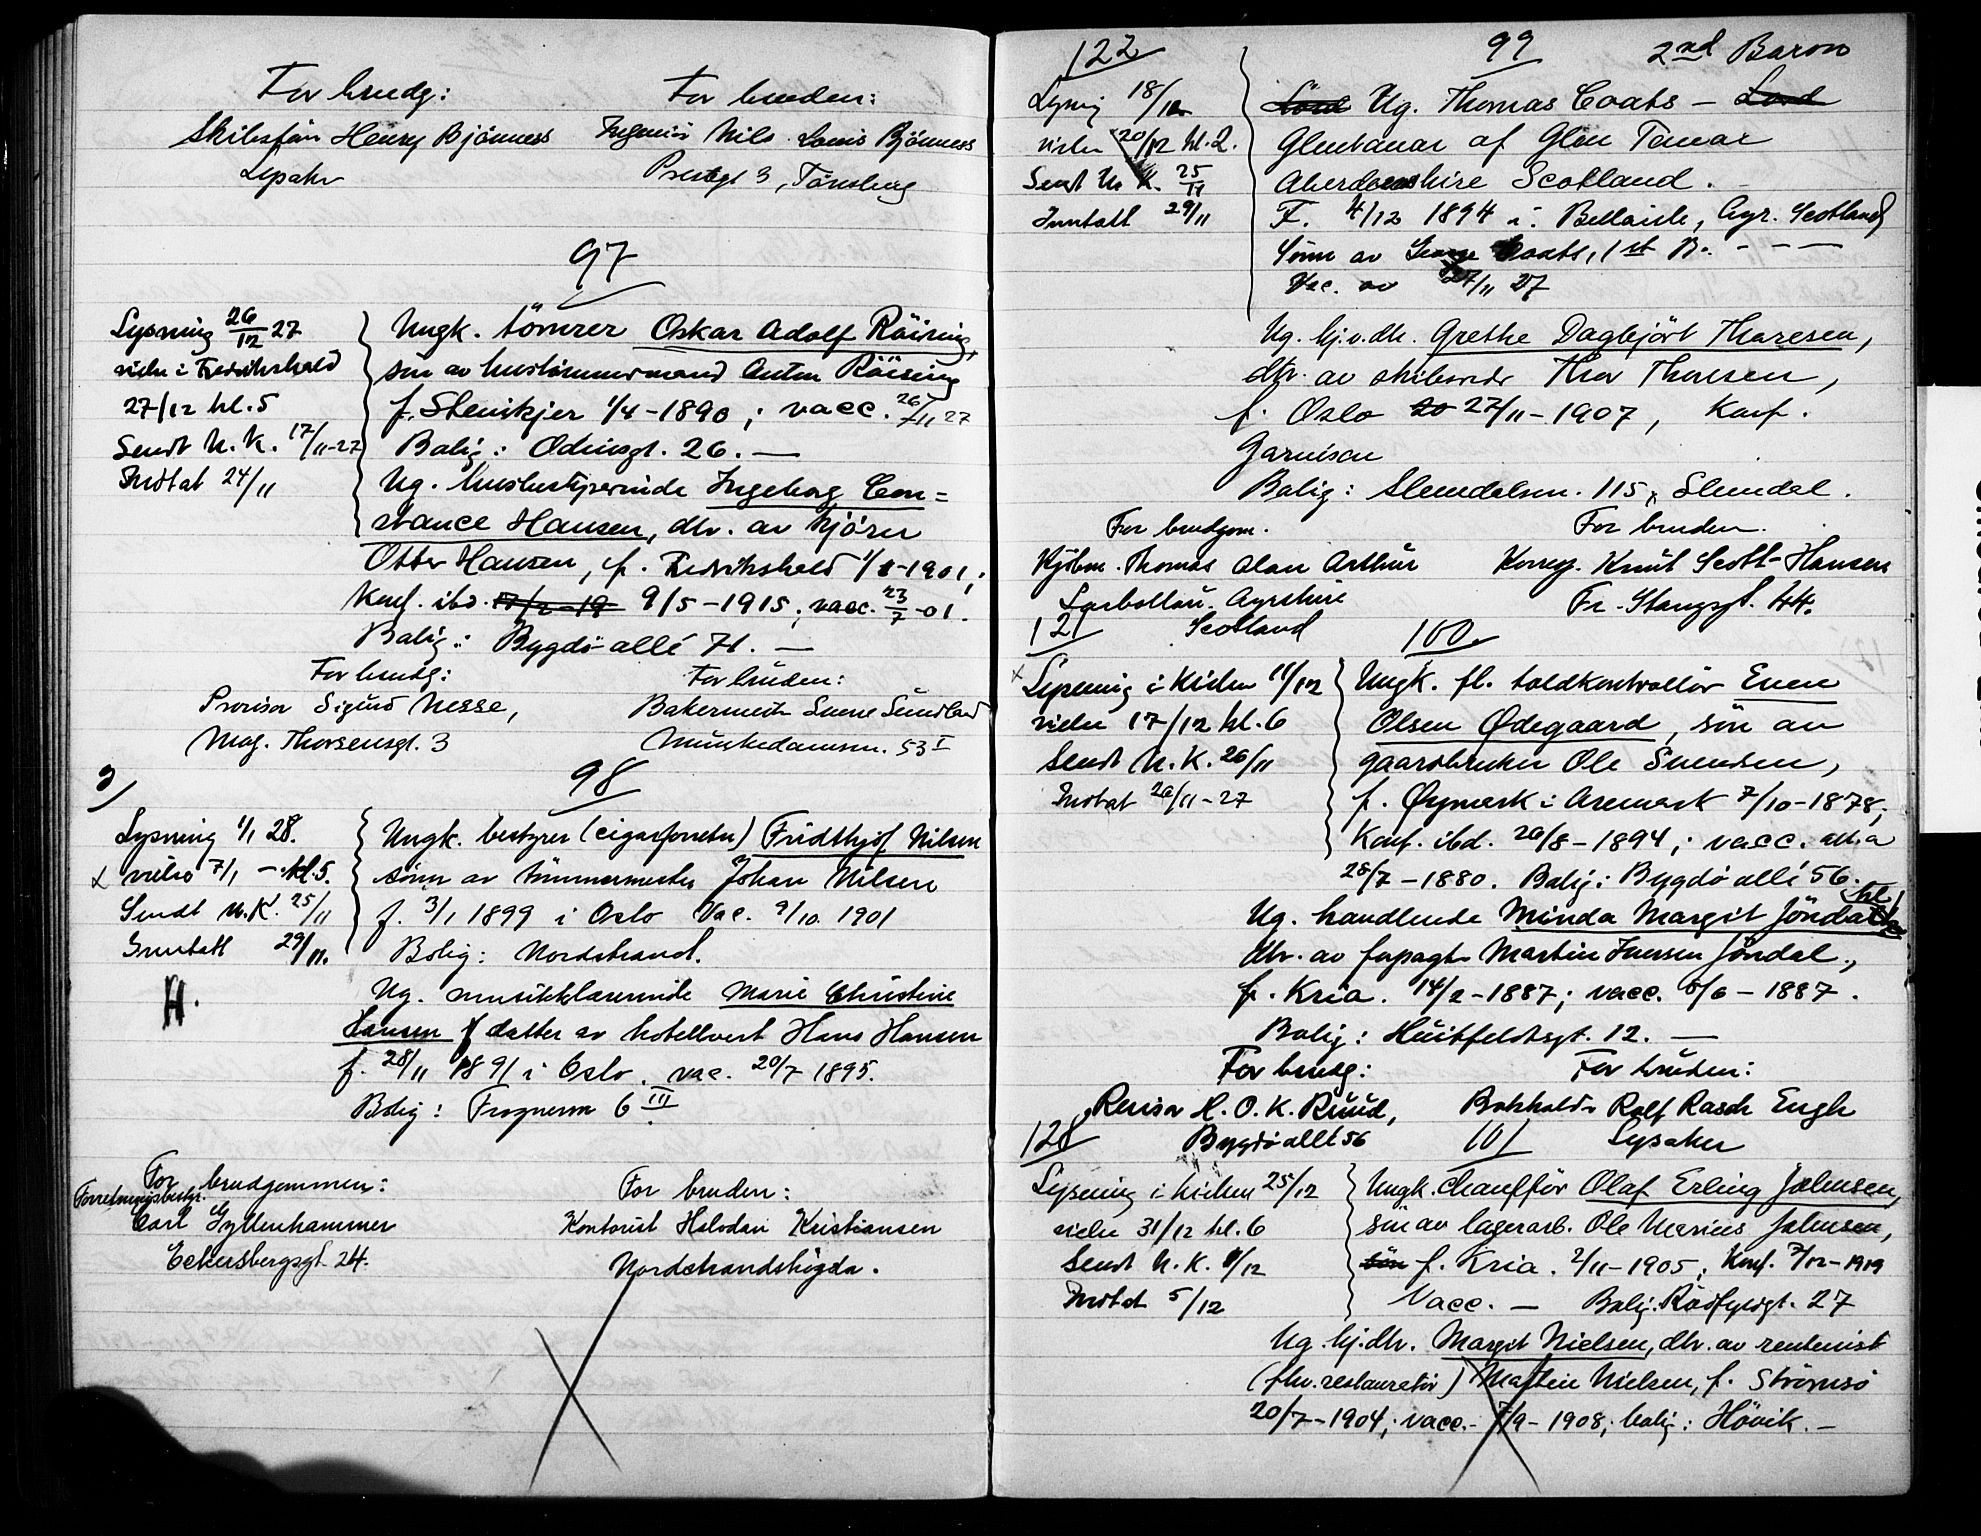 For brudg:
For bruden:
Skibsfør Henry Bjönness
Lysaker
Ingeniör Nils Louis Bjönness
Prestegt 3, Tönsberg
97
Lysning 26/12 27
vielse i Fredrikshald
27/12 kl. 5
Sendt U. K. 17/11-27
Indtat 24/11
Ungk. tömrer Oskar Adolf Röising,
sön av hustömmermand Anton Röising
f. Stenkjer 1/4-1890; vacc. 26/11 27
Bolig: Odinsgt. 26. —
Ug. husbestyrerinde Ingeborg Con=
stance Hansen, dtr. av kjörer
Otter Hansen, f. Fredrikshald 1/1-1901;
Konf. ibd. 9/5-1915; vacc. 23/7-01.
Bolig: Bygdö allé 71. —
For brudg:
For bruden:
Provisor Sigurd Nesse,
Mog. Thorsensgt. 3
Bakermester Sverre Sundland
Munkedamsvn. 53 I
98
Lysning 1/1 28.
x vielse 7/1 — kl. 5.
Sendt U.K. 25/11
Inntatt 29/11.
H.
Ungk. bestyrer (cigarforretn) Fridthjof Nilsen
sönn av tömmermester Johan Nilsen
f. 3/1 1899 i Oslo Vac. 9/10 1901
Bolig: Nordstrand.
Ug. musikklærerinde Marie Christine
Hansen datter av hotellvert Hans Hansen
f. 28/11 1891 i Oslo. vac. 20/7 1895.
Bolig: Frognervn 6 III
For brudgommen:
Forretningsbestyr.
Carl Gyllenhammer
Eckersbergsgt 24.
For bruden:
Kontorist Halvdan Kristiansen
Nordstrandshögda.
122
99
2nd Baron
Lysning 18/12
vielse 20/12 kl. 2.
Sendt U. K. 25/11
Inntatt 29/11
Lord Ug. Thomas Coats — Lord
Glentanar of Glen Tanar
Aberdeenshire Scotland.
F. 4/12 1894 i Belleisle, Ayr. Scotland
Sönn av George Coats, 1st B. - - —
Vac. av 27/11 27
Ug. hj.v.dtr. Grethe Dagbjört Thoresen,
dtr. av skibsredr Thor Thoresen,
f. Oslo 27/11-1907, Konf.
Garnison
Bolig: Slemdalsvn. 115, Slemdal.
For brudgom.
For bruden.
Kjöbm. Thomas Alan Arthur
Ayrshire
Scotland
Korreg. Knut Scott-Hansen
Fr. Stangsgt. 44.
121
100
x Lysning i kirken 11/12
vielse 17/12 kl. 6
Sendt U. K. 26/11
Indtat 26/11-27
Ungk. fl. toldkontrollör Even
Olsen Ødegaard, sön av
gaardbruker Ole Svendsen,
f. Øymark i Aremark 7/10-1878;
Konf. ibd. 26/8-1894; vacc. att.a
28/7-1880. Bolig: Bygdö allé 56.
Ug. handlende Minda Margit Jöndahl
dtr. av forpagter Martin Iversen Jöndal,
f. Kria. 14/2-1887; vacc. 8/6-1887.
Bolig: Huitfeldtsgt. 12. —
For brudg:
For bruden:
Revisor H. O. K. Ruud,
Bygdö allé 56
Bokholder Rolf Rasch Engh
Lysaker
128
101
Lysning i kirken 25/12
vielse 31/12 kl. 6
Sendt U. K. 1/12
Indtat 5/12
Ungk. chaufför Olaf Erling Johnsen,
sön av lagerarb. Ole Marius Johnsen,
sön f. Kria. 2/11-1905; Konf. 7/12-1919
Vacc. — Bolig: Rådfyldgt. 27
Ug. hj.dtr. Margit Nielsen, dtr. av rentenist
(fhv. restauratör) Martin Nielsen, f. Strömsö
20/7-1904; vacc. 7/9-1908; bolig: Hövik. —